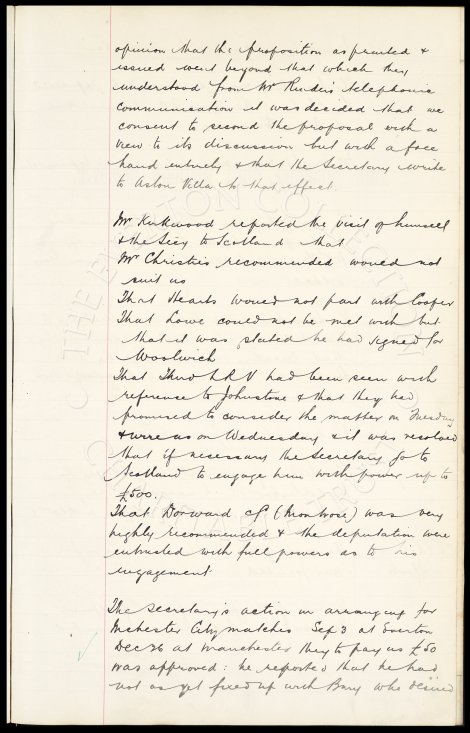 opinion that the proposition as printed &
issued went beyond that which they
understood from Mr Rinder's telephonic
communication it was decided that we
consent to second the proposal with a
view to its discussion but with a free
hand entirely & that the Secretary write
to Aston Villa to that effect.
Mr Kirkwood reported the visit of himself
& the Secy to Scotland that
Mr Christie's recommended would not
suit us
That Hearts would not part with Cooper
That Lowe could not be met with but
that it was stated he had signed for
Woolwich
That Third L R V had been seen with
reference to Johnstone & that they had
promised to consider the matter on Tuesday
& wire us on Wednesday & it was resolved
that if necessary the Secretary go to
Scotland to engage him with power up to
£500.
That Dorward (Montrose) was very
highly recommended & the deputation were
entrusted with full powers as to his
engagement
The Secretary's action in arranging for
Mchester City matches Sep 3 at Everton
Dec 26 at Manchester they to pay us £50
was approved: he reported that he had
not as yet fixed up with Bury who desired
THE EVERTON COLLECTION
CHARITABLE TRUST